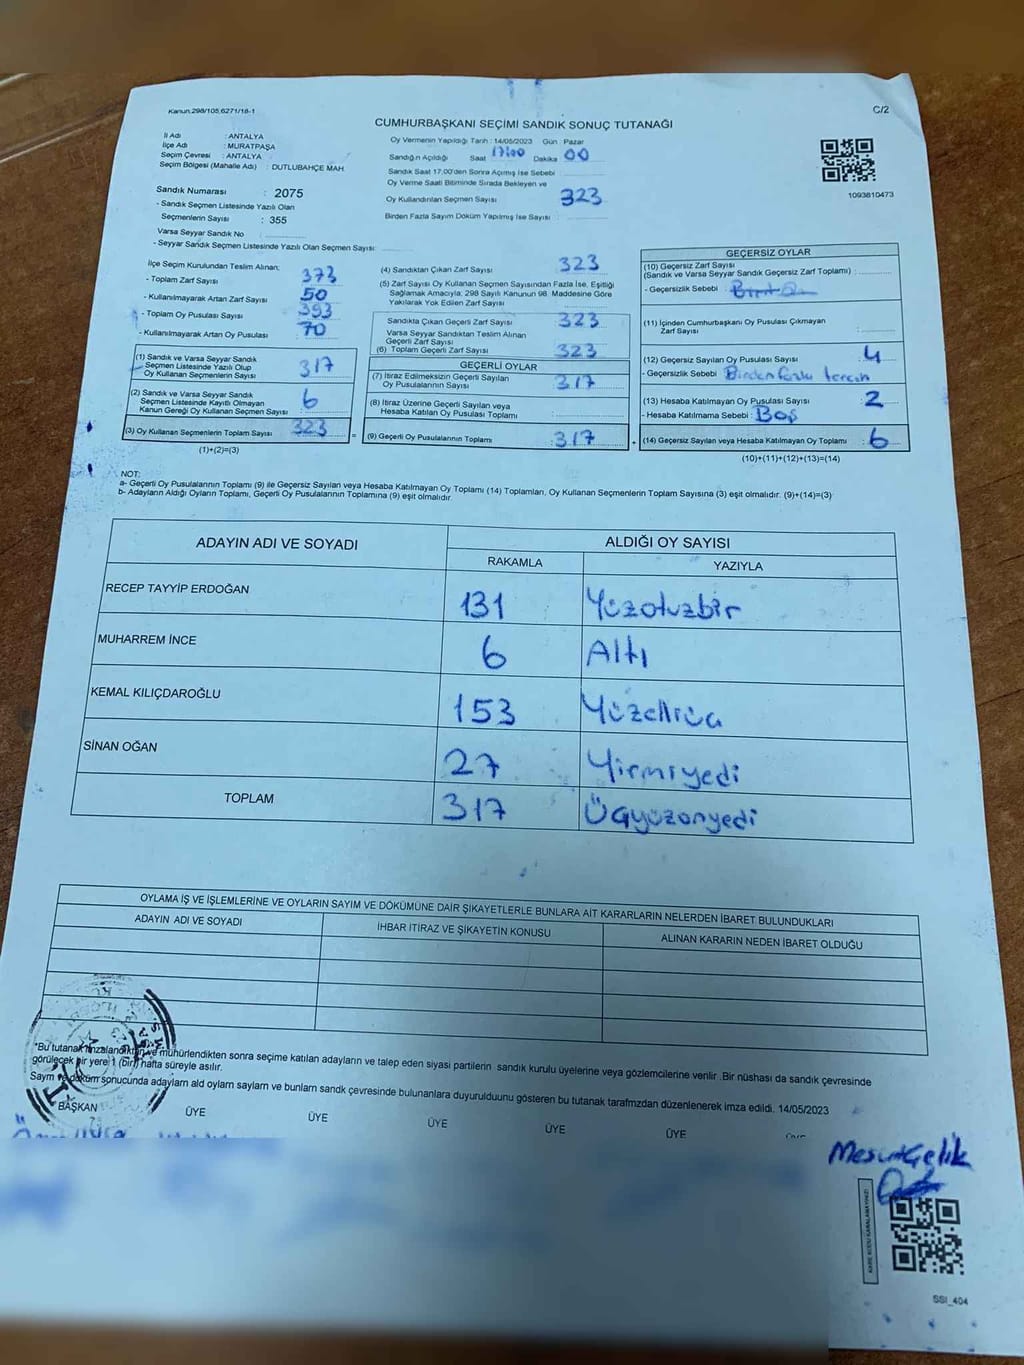 Kanun.298/105,6271/18-1
C/2
CUMHURBAŞKANI SEÇİMİ SANDIK SONUÇ TUTANAĞI
İl Adı : ANTALYA
İlçe Adı : MURATPAŞA
Seçim Çevresi : ANTALYA
Seçim Bölgesi (Mahalle Adı) : DUTLUBAHÇE MAH.
Sandık Numarası : 2075
- Sandık Seçmen Listesinde Yazılı Olan
Seçmenlerin Sayısı : 355
Varsa Seyyar Sandık No :
- Seyyar Sandık Seçmen Listesinde Yazılı Olan Seçmen Sayısı:
Oy Vermenin Yapıldığı Tarih : 14/05/2023 Gün : Pazar
Sandığın Açıldığı Saat 17:00 Dakika 00
Sandık Saat 17.00'den Sonra Açımış İse Sebebi
Oy Verme Saati Bitiminde Sırada Bekleyen ve
Oy Kullandırılan Seçmen Sayısı 323
Birden Fazla Sayım Döküm Yapılmış İse Sayısı
1093810473
İlçe Seçim Kurulundan Teslim Alınan;
- Toplam Zarf Sayısı 373
- Kullanılmayarak Artan Zarf Sayısı 50
- Toplam Oy Pusulası Sayısı 393
- Kullanılmayarak Artan Oy Pusulası 70
(1) Sandık ve Varsa Seyyar Sandık
Seçmen Listesinde Yazılı Olup
Oy Kullanan Seçmenlerin Sayısı 317
(2) Sandık ve Varsa Seyyar Sandık
Seçmen Listesinde Kayıtlı Olmayan
Kanun Gereği Oy Kullanan Seçmen Sayısı 6
(3) Oy Kullanan Seçmenlerin Toplam Sayısı 323
(1)+(2)=(3)
(4) Sandıktan Çıkan Zarf Sayısı 323
(5) Zarf Sayısı Oy Kullanan Seçmen Sayısından Fazla İse, Eşitliği
Sağlamak Amacıyla; 298 Sayılı Kanunun 98. Maddesine Göre
Yakılarak Yok Edilen Zarf Sayısı
Sandıkta Çıkan Geçerli Zarf Sayısı 323
Varsa Seyyar Sandıktan Teslim Alınan
Geçerli Zarf Sayısı
(6) Toplam Geçerli Zarf Sayısı 323
GEÇERLİ OYLAR
(7) İtiraz Edilmeksizin Geçerli Sayılan
Oy Pusulalarının Sayısı 317
(8) İtiraz Üzerine Geçerli Sayılan veya
Hesaba Katılan Oy Pusulası Toplamı
= (9) Geçerli Oy Pusulalarının Toplamı : 317 +
GEÇERSİZ OYLAR
(10) Geçersiz Zarf Sayısı
(Sandık ve Varsa Seyyar Sandık Geçersiz Zarf Toplamı) :
- Geçersizlik Sebebi :
(11) İçinden Cumhurbaşkanı Oy Pusulası Çıkmayan
Zarf Sayısı
(12) Geçersiz Sayılan Oy Pusulası Sayısı 4
- Geçersizlik Sebebi Birden fazla tercih
(13) Hesaba Katılmayan Oy Pusulası Sayısı 2
- Hesaba Katılmama Sebebi : Boş
(14) Geçersiz Sayılan veya Hesaba Katılmayan Oy Toplamı : 6
(10)+(11)+(12)+(13)=(14)
NOT:
a- Geçerli Oy Pusulalarının Toplamı (9) ile Geçersiz Sayılan veya Hesaba Katılmayan Oy Toplamı (14) Toplamları, Oy Kullanan Seçmenlerin Toplam Sayısına (3) eşit olmalıdır. (9)+(14)=(3)
b- Adayların Aldığı Oyların Toplamı, Geçerli Oy Pusulalarının Toplamına (9) eşit olmalıdır.
ADAYIN ADI VE SOYADI
ALDIĞI OY SAYISI
RAKAMLA YAZIYLA
RECEP TAYYİP ERDOĞAN 131 Yüzotuzbir
MUHARREM İNCE 6 Altı
KEMAL KILIÇDAROĞLU 153 Yüzelliüç
SİNAN OĞAN 27 Yirmiyedi
TOPLAM 317 Üçyüzonyedi
OYLAMA İŞ VE İŞLEMLERİNE VE OYLARIN SAYIM VE DÖKÜMÜNE DAİR ŞİKAYETLERLE BUNLARA AİT KARARLARIN NELERDEN İBARET BULUNDUKLARI
ADAYIN ADI VE SOYADI İHBAR İTİRAZ VE ŞİKAYETİN KONUSU ALINAN KARARIN NEDEN İBARET OLDUĞU
*Bu tutanak imzalandıktan ve mühürlendikten sonra seçime katılan adayların ve talep eden siyasi partilerin sandık kurulu üyelerine veya gözlemcilerine verilir. Bir nüshası da sandık çevresinde
görülecek bir yere 1 (bir) hafta süreyle asılır.
Sayım ve döküm sonucunda adaylarn ald oylarn saylarn ve bunlarn sandk çevresinde bulunanlara duyurulduunu gösteren bu tutanak tarafmzdan düzenlenerek imza edildi. 14/05/2023
BAŞKAN ÜYE ÜYE ÜYE ÜYE ÜYE
Mesut Çelik
SSI_404